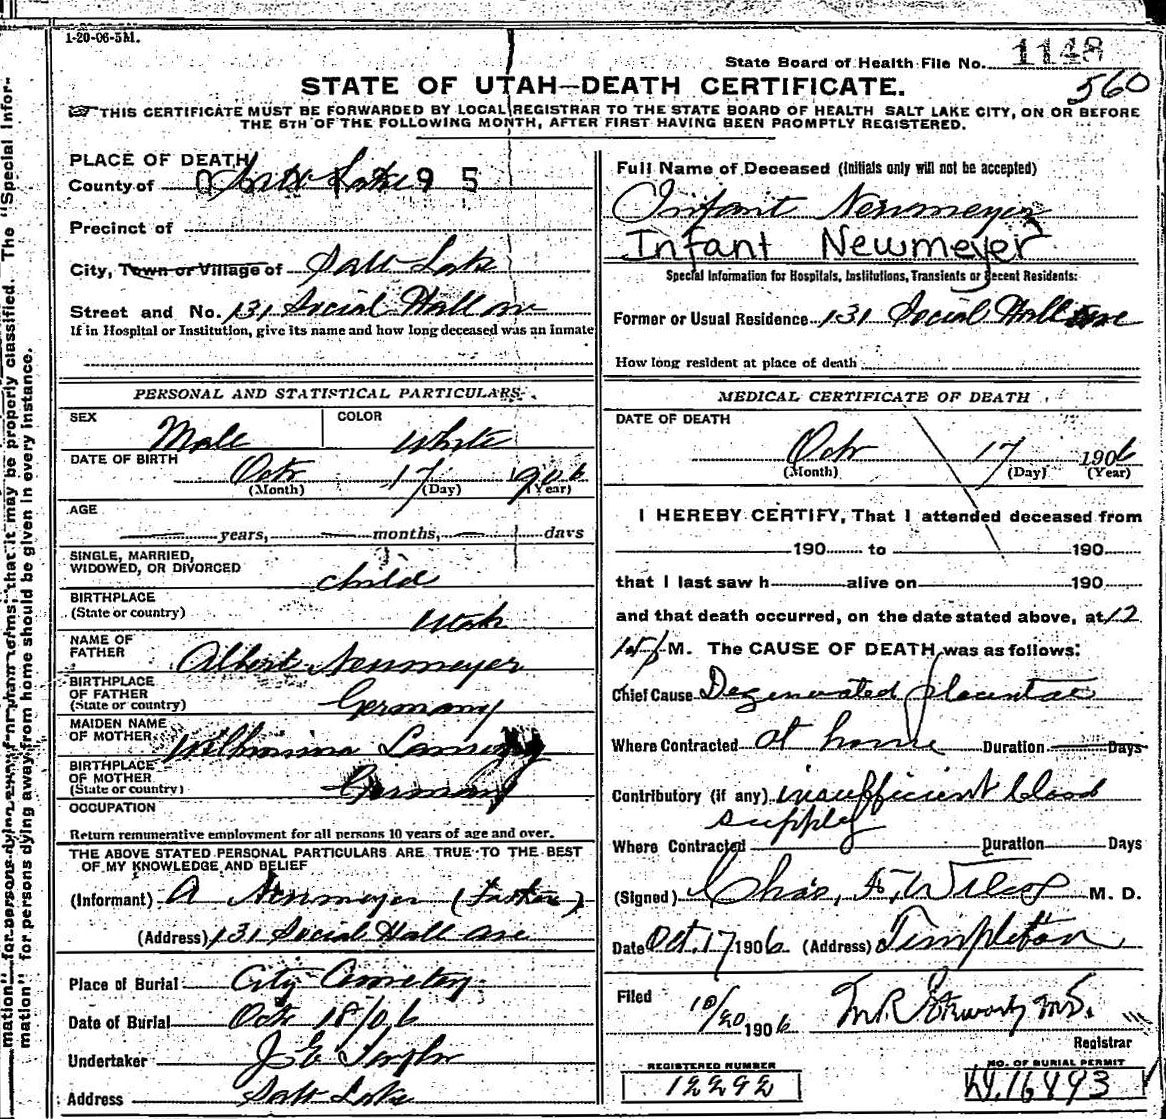 1-20-06-5M.
State Board of Health File No. 1148
560
STATE OF UTAH—DEATH CERTIFICATE.
THIS CERTIFICATE MUST BE FORWARDED BY LOCAL REGISTRAR TO THE STATE BOARD OF HEALTH SALT LAKE CITY, ON OR BEFORE
THE 5TH OF THE FOLLOWING MONTH, AFTER FIRST HAVING BEEN PROMPTLY REGISTERED.
mation" for persons dying away from home should be given in every instance.
that it may be properly classified. The "Special Infor-
PLACE OF DEATH
County of Lake 95
Precinct of
City, Town or Village of Salt Lake
Street and No. 131 Social Hall av
If in Hospital or Institution, give its name and how long deceased was an inmate
PERSONAL AND STATISTICAL PARTICULARS.
SEX Male COLOR White
DATE OF BIRTH Oct 17 1906
(Month) (Day) (Year)
AGE
years, months, days
SINGLE, MARRIED,
WIDOWED, OR DIVORCED child
BIRTHPLACE
(State or country) Utah
NAME OF
FATHER Albert Newmeyer
BIRTHPLACE
OF FATHER
(State or country) Germany
MAIDEN NAME
OF MOTHER Wilhmina
BIRTHPLACE
OF MOTHER
(State or country) Germany
OCCUPATION
Return remunerative employment for all persons 10 years of age and over.
THE ABOVE STATED PERSONAL PARTICULARS ARE TRUE TO THE BEST
OF MY KNOWLEDGE AND BELIEF
(Informant) A Newmeyer (Father)
(Address) 131 Social Hall ave
Place of Burial City Cemetery
Date of Burial Oct 18/06
Undertaker J E Taylor
Address Salt Lake
Full Name of Deceased (Initials only will not be accepted)
Infant Newmeyer
Infant Newmeyer
Special Information for Hospitals, Institutions, Transients or Recent Residents:
Former or Usual Residence 131 Social Hall ave
How long resident at place of death
MEDICAL CERTIFICATE OF DEATH
DATE OF DEATH
Oct 17 1906
(Month) (Day) (Year)
I HEREBY CERTIFY, That I attended deceased from
190 to 190
that I last saw h alive on 190
and that death occurred, on the date stated above, at 12
M. The CAUSE OF DEATH was as follows:
Chief Cause Degenerated placentae
Where Contracted at home Duration Days
Contributory (if any) insufficient blood
supply
Where Contracted Duration Days
(Signed) Chas. F. Wilcox M. D.
Date Oct. 17 1906 (Address) Templeton
Filed 10/20 1906 M.R. Stewart M.D.
Registrar
REGISTERED NUMBER
12292
NO. OF BURIAL PERMIT
16493